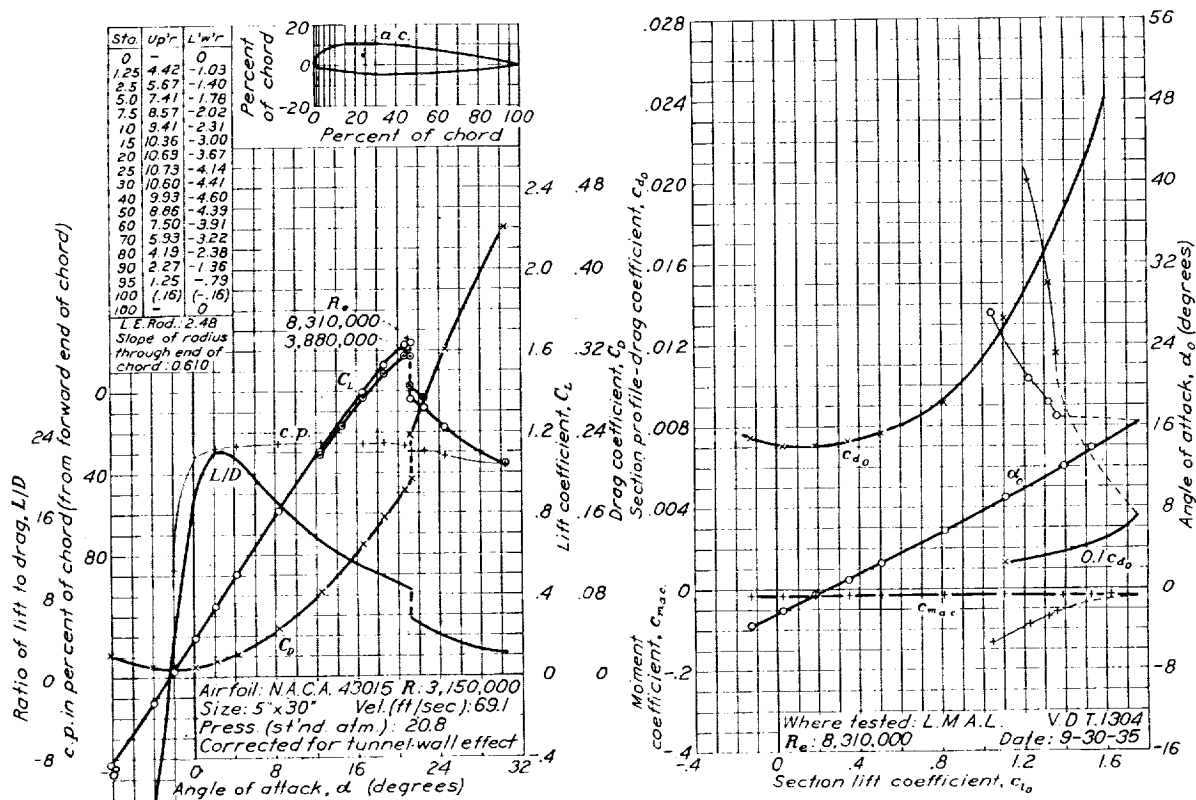 Sta. Up'r L'w'r
0 – 0
1.25 4.42 -1.03
2.5 5.67 -1.40
5.0 7.41 -1.78
7.5 8.57 -2.02
10 9.41 -2.31
15 10.36 -3.00
20 10.69 -3.67
25 10.73 -4.14
30 10.60 -4.41
40 9.93 -4.60
50 8.86 -4.39
60 7.50 -3.91
70 5.93 -3.22
80 4.19 -2.38
90 2.27 -1.36
95 1.25 -.79
100 (.16) (-.16)
100 – 0
L.E. Rad.: 2.48
Slope of radius
through end of
chord: 0.610
20
0
-20
Percent
of chord
a.c.
0 20 40 60 80 100
Percent of chord
Re
8,310,000
3,880,000
CL
c.p.
L/D
CD
0
24
40
16
80
8
0
-8
Ratio of lift to drag, L/D
c.p. in percent of chord (from forward end of chord)
2.4 .48
2.0 .40
1.6 .32
1.2 .24
.8 .16
.4 .08
0 0
-.4
Lift coefficient, CL
Drag coefficient, CD
Airfoil: N.A.C.A. 43015 R: 3,150,000
Size: 5"x30" Vel. (ft/sec): 69.1
Press. (st'nd. atm.): 20.8
Corrected for tunnel-wall effect
-8 0 8 16 24 32
Angle of attack, α (degrees)
.028
.024
.020
.016
.012
.008
.004
0
-.2
-.4
Section profile-drag coefficient, cd0
Moment
coefficient, cma.c.
56
48
40
32
24
16
8
0
-8
-16
Angle of attack, α0 (degrees)
cd0
α0
0.1cd0
cma.c.
Where tested: L.M.A.L. V.D.T. 1304
Re: 8,310,000 Date: 9-30-35
-.4 0 .4 .8 1.2 1.6
Section lift coefficient, cl0